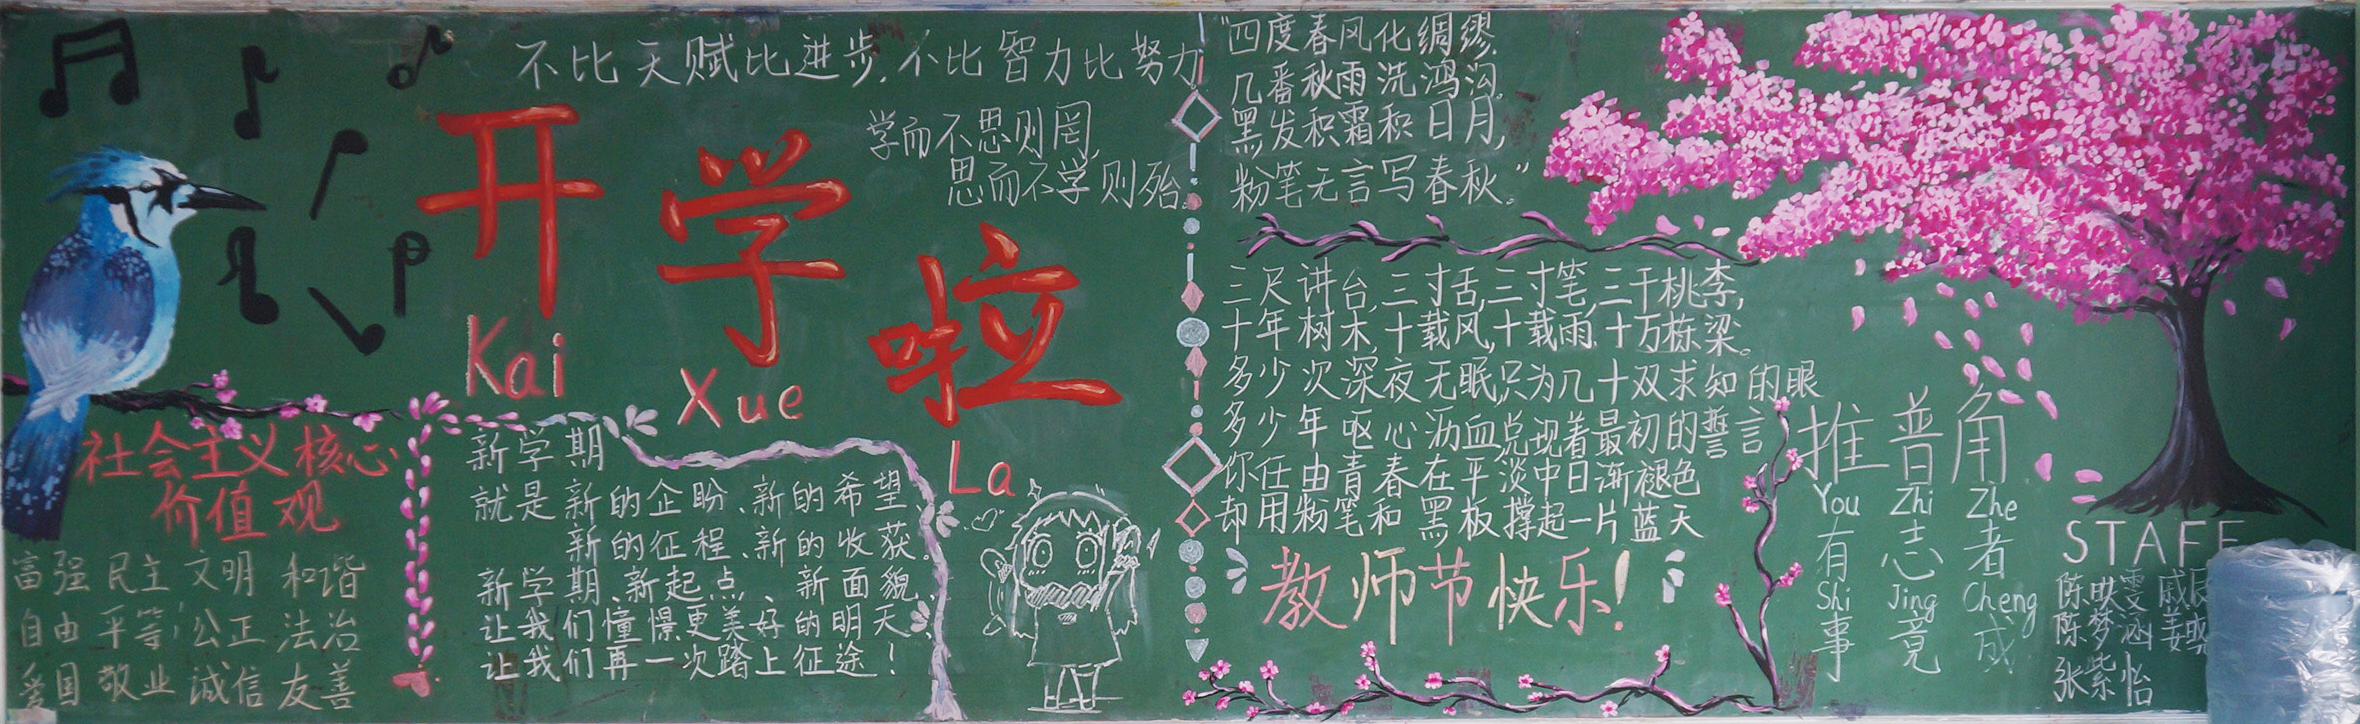 不比天赋比进步,不比智力比努力
开学啦
Kai Xue La
学而不思则罔,
思而不学则殆。
社会主义核心
价值观
富强 民主 文明 和谐
自由 平等 公正 法治
爱国 敬业 诚信 友善
新学期
就是新的企盼、新的希望、
新的征程、新的收获。
新学期、新起点、新面貌、
让我们憧憬更美好的明天、
让我们再一次踏上征途!
"四度春风化绸缪,
几番秋雨洗鸿沟。
黑发积霜积日月,
粉笔无言写春秋。"
三尺讲台,三寸舌,三寸笔,三千桃李,
十年树木,十载风,十载雨,十万栋梁。
多少次深夜无眠,只为几十双求知的眼
多少年呕心沥血,兑现着最初的誓言
你任由青春在平淡中日渐褪色
却用粉笔和黑板撑起一片蓝天
教师节快乐!
推普角
You Zhi Zhe
有志者
Shi Jing Cheng
事竟成
STAFF
陈映雯 戚
陈梦涵 姜
张紫怡